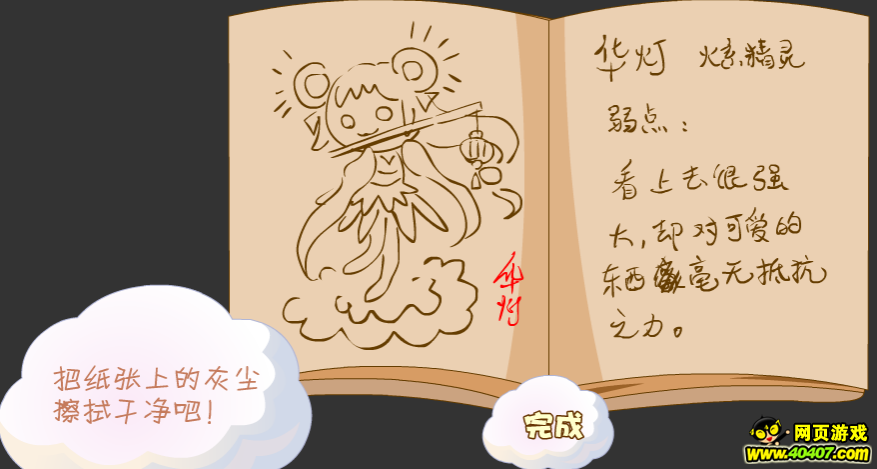 华灯 炫精灵
弱点：
看上去很强
大，却对可爱的
东西毫无抵抗
之力。
华灯
把纸张上的灰尘
擦拭干净吧！
完成
网页游戏
www.40407.com